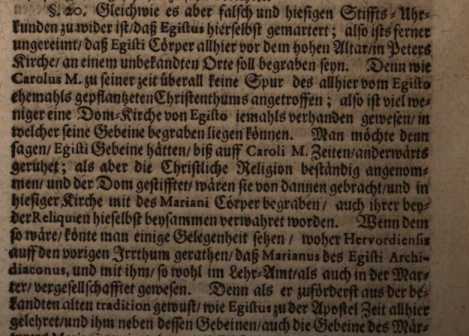 §. 20. Gleichwie es aber falsch und hiesigen Stiffts-Uhr-
kunden zu wider ist/daß Egistus hierselbst gemartert; also ists ferner
ungereimt/daß Egisti Cörper allhier vor dem hohen Altar/in Peters
Kirche/an einem unbekandten Orte soll begraben seyn. Denn wie
Carolus M. zu seiner zeit überall keine Spur des allhier vom Egisto
ehemahls gepflantzeten Christenthums angetroffen; also ist viel we-
niger eine Dom-Kirche von Egisto iemahls verhanden gewesen/in
welcher seine Gebeine begraben liegen können. Man möchte denn
sagen/Egisti Gebeine hätten/biß auff Caroli M. Zeiten/anderwärts
geruhet; als aber die Christliche Religion beständig angenom-
men/und der Dom gestifftet/wären sie von dannen gebracht/und in
hiesiger Kirche mit des Mariani Cörper begraben/ auch ihrer bey-
der Reliquien hieselbst beysammen verwahret worden. Wenn dem
so wäre/könte man einige Gelegenheit sehen/ woher Hervordiensis
auff den vorigen Irrthum gerathen/daß Marianus des Egisti Archi-
diaconus, und mit ihm/so wohl im Lehr-Amt/als auch in der Mar-
ter/vergesellschafftet gewesen. Denn als er zuförderst aus der be-
kandten alten tradition gewust/wie Egistus zu der Apostel Zeit allhier
gelehret/und ihm neben dessen Gebeinen/auch die Gebeine des Mär-